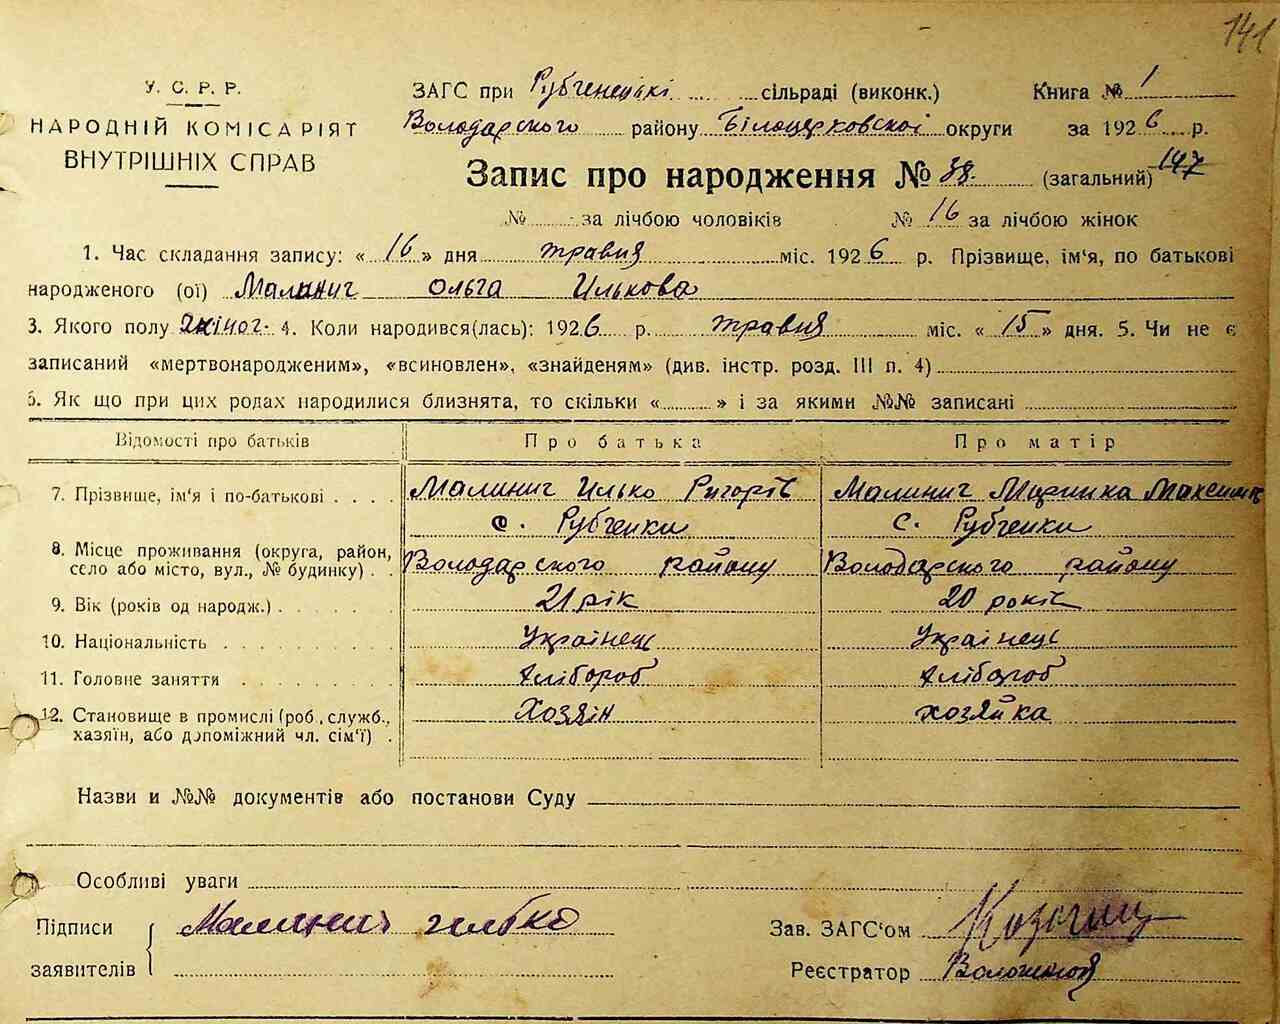 141
У. С. Р. Р.
НАРОДНІЙ КОМІСАРІЯТ
ВНУТРІШНІХ СПРАВ
ЗАГС при Рубченецькі сільраді (виконк.) Книга № 1
Володарского району Білоцерковскої округи за 1926 р.
Запис про народження № 38. (загальний) 147
№ за лічбою чоловіків № 16 за лічбою жінок
1. Час складання запису: « 16 » дня травня міс. 1926 р. Прізвище, ім'я, по батькові
народженого (ої) Малинич Ольга Илькова
3. Якого полу жіноч. 4. Коли народився(лась): 1926 р. травня міс. « 15 » дня. 5. Чи не є
записаний «мертвонародженим», «всиновлен», «знайденям» (див. інстр. розд. III п. 4)
6. Як що при цих родах народилися близнята, то скільки « » і за якими №№ записані
Відомості про батьків Про батька Про матір
7. Прізвище, ім'я і по-батькові . . . . Малинич Илько Ригорів Малинич Маринка Максимів
с. Рубченки с. Рубченки
8. Місце проживання (округа, район, село або місто, вул., № будинку) . . Володарского району Володарского району
9. Вік (років од народж.) . . . . . . 21 рік 20 років
10. Національність . . . . . . . . . Українець Українець
11. Головне заняття . . . . . . . . Хлібороб Хлібороб
12. Становище в промислі (роб., служб., хазяїн, або допоміжний чл. сім'ї) . Хозяїн хозяйка
Назви и №№ документів або постанови Суду
Особливі уваги
Підписи заявителів Малинич Илько
Зав. ЗАГС'ом
Реєстратор